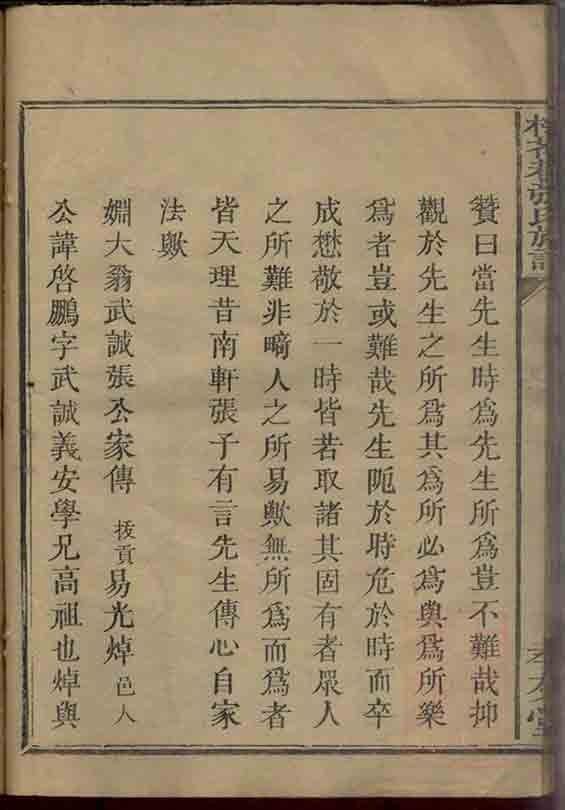 贊曰當先生時爲先生所爲豈不難哉抑
觀於先生之所爲其爲所必爲與爲所樂
爲者豈或難哉先生阨於時危於時而卒
成懋敬於一時皆若取諸其固有者眾人
之所難非畸人之所易歟無所爲而爲者
皆天理昔南軒張子有言先生傳心自家
法歟
姻大翁武誠張公家傳 拔貢 易光焯 邑人
公諱啓鵬字武誠義安學兄高祖也焯與